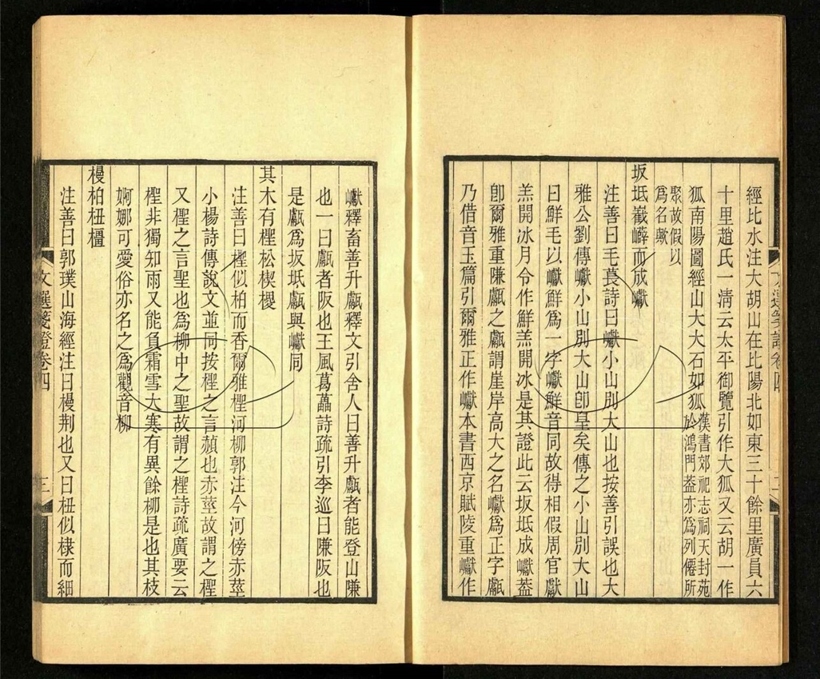 經比水注大胡山在比陽北如東三十餘里廣員六
十里趙氏一清云太平御覽引作大狐又云胡一作
狐南陽圖經山大大石如狐漢書郊祀志祠天封苑
於鴻門葢亦為列僊所
聚故假以
為名歟
坂坻嶻嶭而成巘
注善曰毛萇詩曰巘小山別大山也按善引誤也大
雅公劉傳巘小山別大山卽皇矣傳之小山別大山
曰鮮毛以巘鮮為一字巘鮮音同故得相假周官獻
羔開冰月令作鮮羔開冰是其證此云坂坻成巘葢
卽爾雅重隒甗之甗謂崖岸高大之名巘為正字甗
乃借音玉篇引爾雅正作巘本書西京賦陵重巘作
巘釋畜善升甗釋文引舍人曰善升甗者能登山隒
也一曰甗者阪也王風葛藟詩疏引李巡曰隒阪也
是甗為坂坻甗與巘同
其木有檉松楔㮨
注善曰檉似柏而香爾雅檉河柳郭注今河傍赤莖
小楊詩傳說文並同按檉之言赬也赤莖故謂之檉
又檉之言聖也為柳中之聖故謂之檉詩疏廣要云
檉非獨知雨又能負霜雪大寒有異餘柳是也其枝
婀娜可愛俗亦名之為觀音柳
槾柏杻橿
注善曰郭璞山海經注曰槾荆也又曰杻似棣而細
文選箋證卷四
三